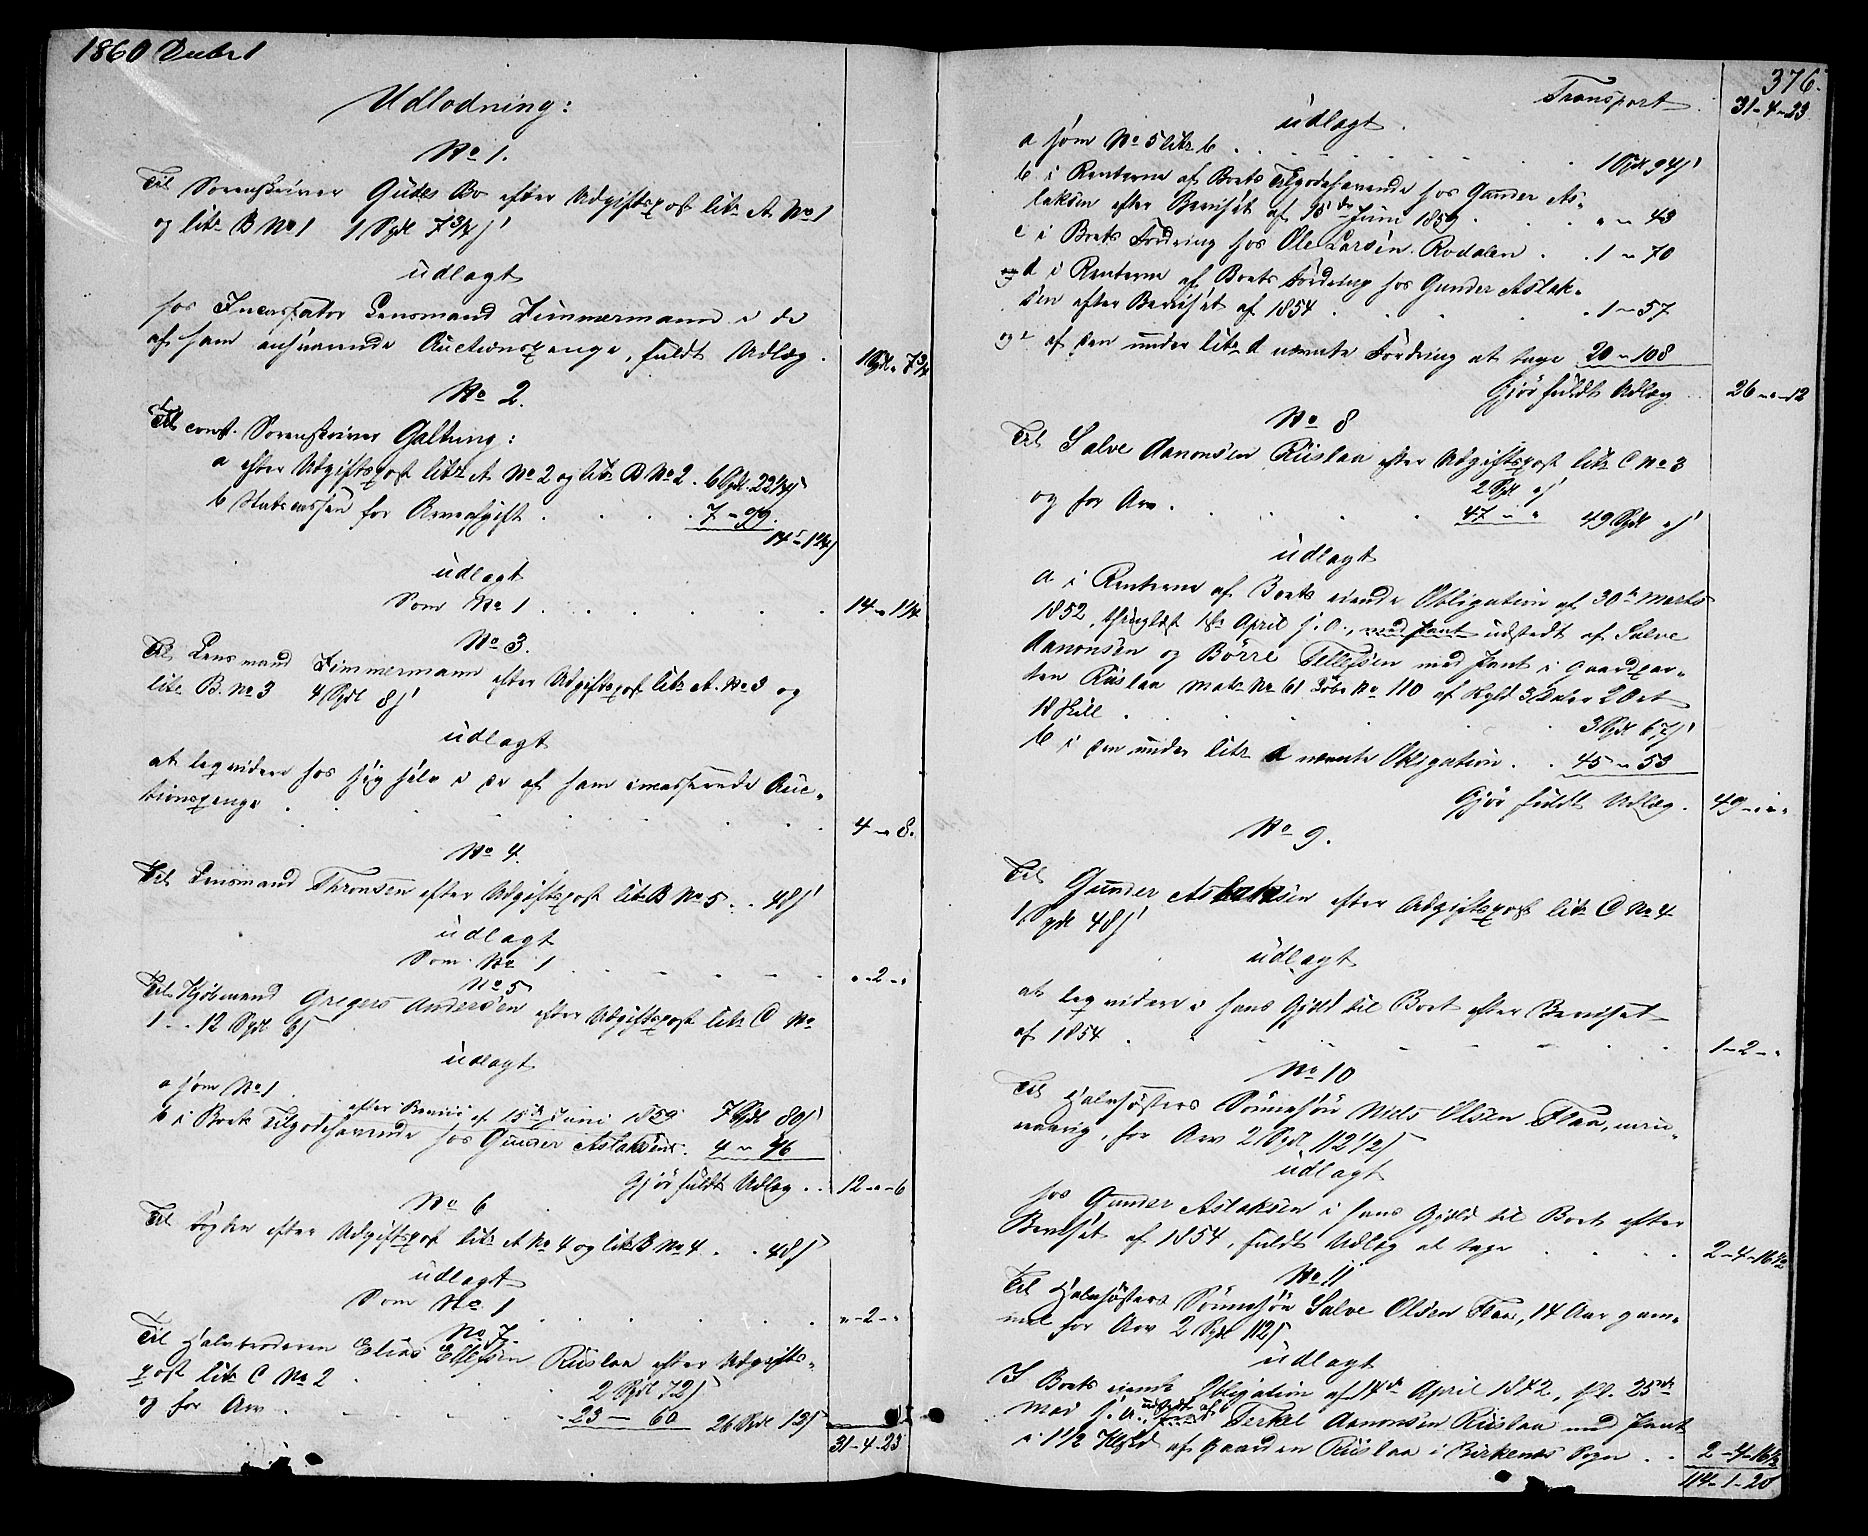 1860 Decbr 1
Udlodning:
No 1.
Til Sorenskriver Gudes Bo efter Udgiftspost litr A No 1
og litr B No 1 1 Spdl 7 3/4 s
udlagt
hos Incassator Lensmand Zimmermann i de
af ham ansvarende Auctionspenge, fuldt Udlæg. 1 Spdl 7 3/4
No 2.
Til const. Sorenskriver Galtung:
a efter Udgiftspost litr A No 2 og litr B No 2. 6 Spdl. 22 1/4 s
b Statscassen for Arveafgift . . . 7 - 99.
14 - 1 1/4 s
udlagt
Som No 1 . . . . . . 14 - 1 1/4
No 3.
Til Lensmand Zimmermann efter Udgiftspost litr A. No 3 og
litr B. No 3 4 Spdl 8 s
udlagt
at leqvidere hos sig selv i de af ham incasserede Auc-
tionspenge . . . . . . 4 - " 8.
No 4.
Til Lensmand Thronsen efter Udgiftspost litr B No 5 . . 48 s
udlagt
Som No 1 . . . . . " - 2 - "
No 5
Til Kjøbmand Gregers Andersen efter Udgiftspost litr C No
1 - . 12 Spdl 6 s
udlagt
a som No 1 . . 7 Spdl 80 s
efter Beviis af 15de Juni 1859
b i Boets Tilgodehavende hos Gunder Aslaksen . 4 - 46
Gjør fuldt Udlæg . . 12 - " - 6
No 6
Til Vogter efter Udgiftspost litr A No 4 og litr B No 4 . . 48 s
udlagt
Som No 1 . . . . . " - 2 - "
No 7.
Til Halvbroderen Elias Ellefsen Riislaa efter Udgifts-
post litr C No 2 . . . 2 Spdl 72 s
og for Arv . . . . 23 - 60 26 Spdl 12 s
31 - 4 - 23
376.
Transport 31 - 4 - 23
udlagt.
a som No 5 litr b . . . . . . 1 Spdl 94 s
b i Renterne af Boets Tilgodehavende hos Gunder As-
laksen efter Beviset af 15de Juni 1859 . . . " - 43
c i Boets Fordring hos Ole Larsen Rodalen . . 1 - 70
og d i Renterne af Boets Fordring hos Gunder Aslak-
sen efter Beviset af 1854 . . . . 1 - 57
og e af den under litr d nævnte Fordring at tage 20 - 108
Gjør fuldt Udlæg . . 26 - " - 12
No 8
Til Salve Aanonsen Riislaa efter Udgiftspost litr C No 3
2 Spdl " s
og for Arv . . . . . 47 - " 49 Spdl " s
udlagt
a i Renterne af Boets eiende Obligation af 30te Marts
1852, thinglæst 1ste April s. a., med Pant udstedt af Salve
Aanonsen og Börre Tellefsen med Pant i Gaardpar-
ten Riislaa Matr No 61 Löbe No 110 af Skyld 3 Daler 2 Ort
18 Skill . . . . . . 3 Spdl 67 s
b i den under litr a nævnte Obligation . . 45 - 53
Gjør fuldt Udlæg . 49 - " - "
No 9.
Til Gunder Aslaksen efter Udgiftspost litr C No 4
1 Spdl 48 s
udlagt
at leqvidere i hans Gjæld til Boet efter Beviset
af 1854 . . . . . . 1 - 2 - "
No 10
Til Halvsösters Sönnesön Niels Olsen Flaa, um-
yndig, for Arv 2 Spdl 112 1/2 s
udlagt
hos Gunder Aslaksen i hans Gjæld til Boet efter
Beviset af 1854, fuldt Udlæg at tage . . . . 2 - 4 - 16 1/2
No 11
Til Halvsösters Sönnesön Salve Olsen Flaa, 14 Aar gam-
mel for Arv 2 Spdl 112 s
udlagt
I Boets eiende Obligation af 14de April 1842, thl. 25de
Mai s. a., udstedt af Terkel Aanonsen Riislaa med Pant
i 1 1/2 Hd af Gaarden Riislaa i Birkenes Sogn . . 2 - 4 - 16 1/2
114 - 1 - 20